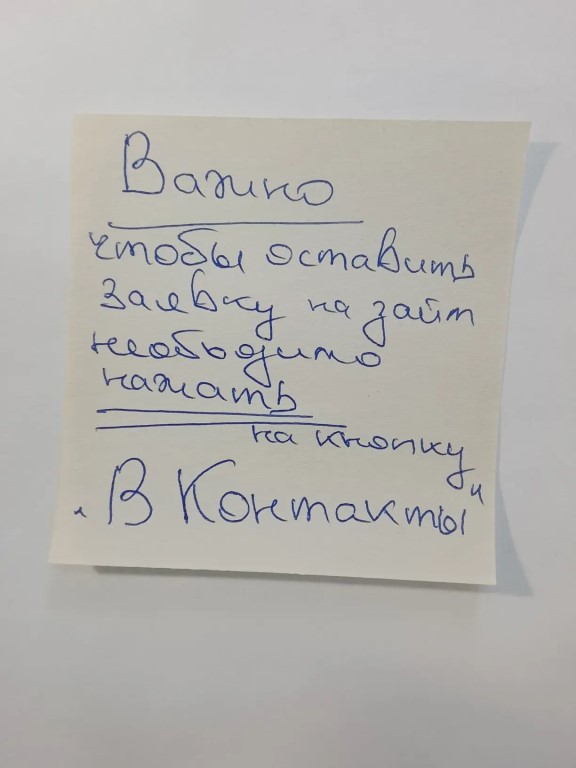 Важно
чтобы оставить
заявку на займ
необходимо
нажать
на кнопку
"В Контакты"